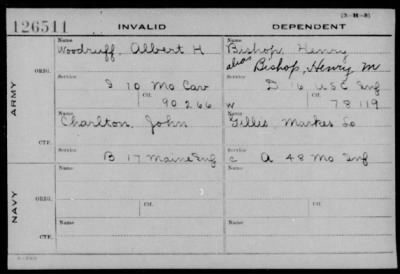 126511 INVALID DEPENDENT
Name Name
Woodruff, Albert H Bishop, Henry
alias Bishop, Henry M
ARMY ORIG. Service Service
S 10 Mo Cav D 6 USC Inf
Ctf. Ctf.
90266 W 78119
Name Name
Charlton, John Gillis, Markes Lo
CTF. Service Service
B 17 Maine Inf C A 48 Mo Inf
NAVY ORIG. Name Name
Service Ctf. Service Ctf.
CTF. Name Name
Service Service